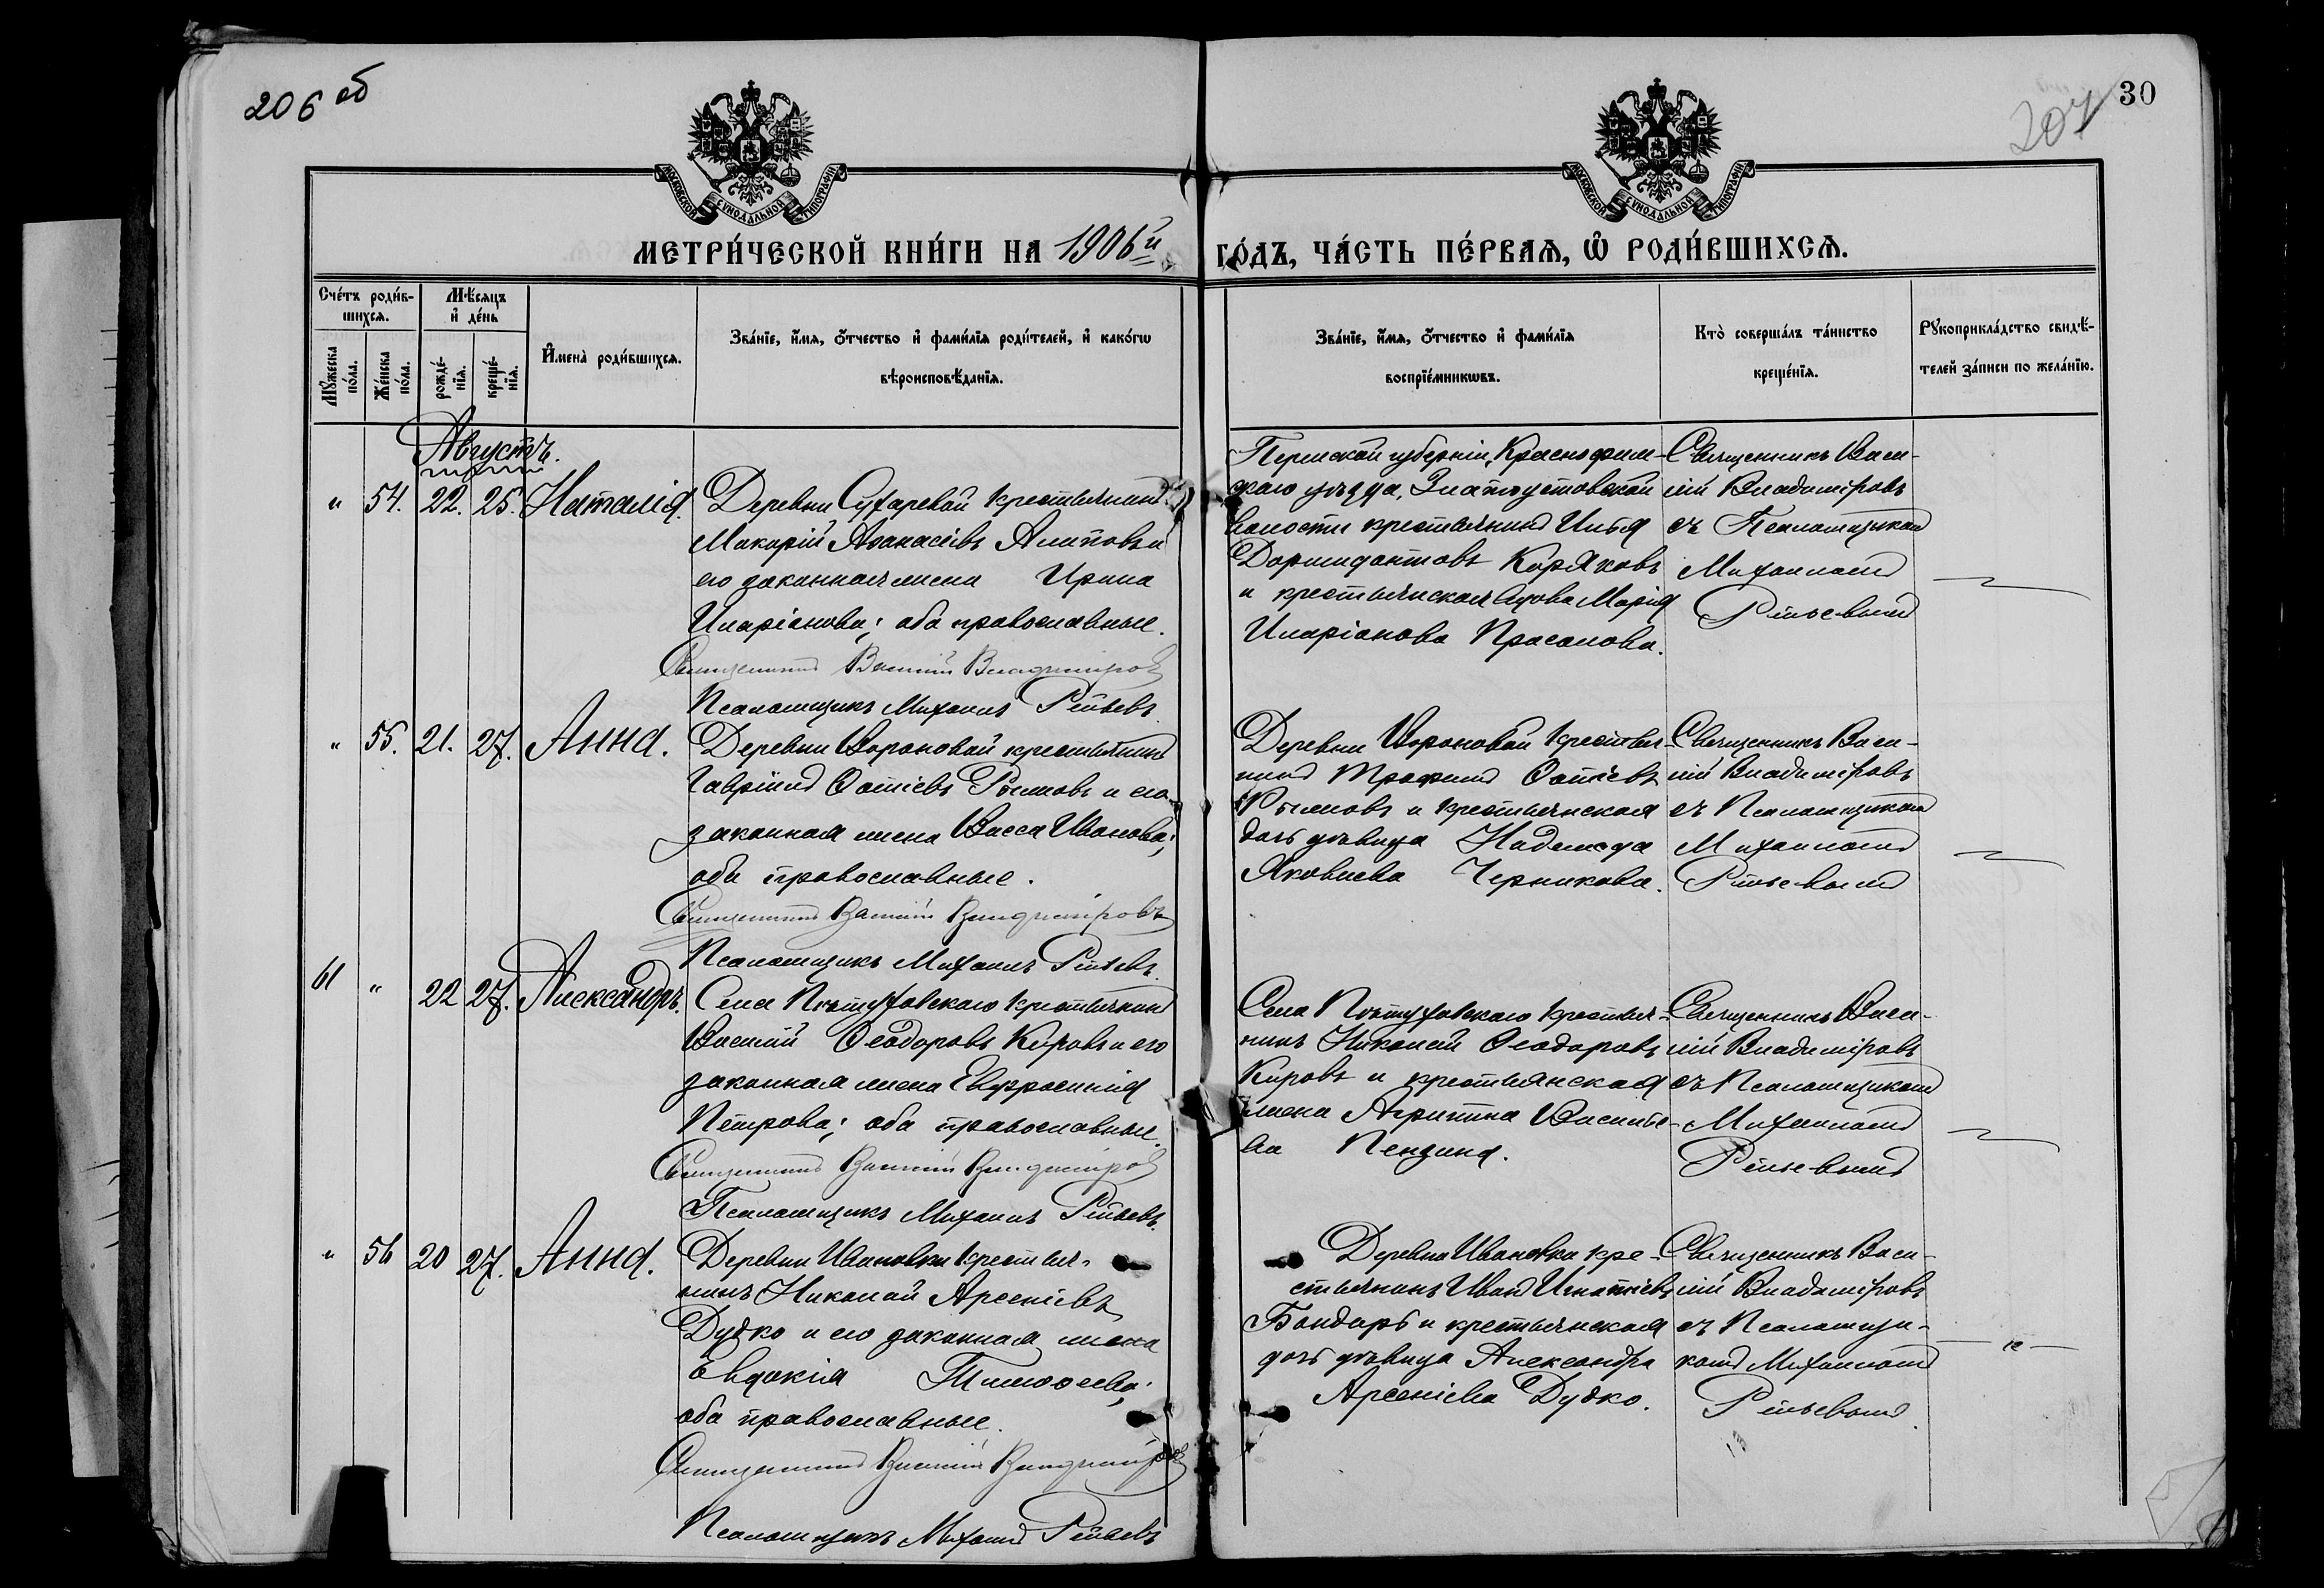 206 об
30
207
МОСКОВСКОЙ СѴНОДАЛЬНОЙ ТИПОГРАФІИ
МОСКОВСКОЙ СѴНОДАЛЬНОЙ ТИПОГРАФІИ
МЕТРИ́ЧЕСКОЙ КНИ́ГИ НА 1906й
ГО́ДЪ, ЧА́СТЬ ПЕ́РВАѦ, Ѡ҆ РОДИ́ВШИХСѦ.
Сче́тъ роди́в-
шихсѧ.
Мꙋ́жеска
по́ла.
Же́нска
по́ла.
Мѣ́сѧцъ
и҆ де́нь
рожде́-
нїѧ.
креще́-
нїѧ.
И҆мена̀ роди́вшихсѧ.
Зва́нїе, и҆́мѧ, ѻ҆́тчество и҆ фамі́лїѧ роди́телей, и҆ како́гѡ
вѣроисповѣ́данїѧ.
Зва́нїе, и҆́мѧ, ѻ҆́тчество и҆ фамі́лїѧ
воспрїе́мникѡвъ.
Кто̀ соверша́лъ та́инство
креще́нїѧ.
Рꙋкоприкла́дство свидѣ́-
телей за́писи по жела́нїю.
Августъ.
" 54. 22. 25. Наталія.
Деревни Сухаревой крестьянинъ
Макарій Аѳанасіевъ Алиповъ и
его законная жена Ирина
Иларіонова; оба православные.
Священникъ Василій Владиміровъ
Псаломщикъ Михаилъ Репьевъ
Пермской губерніи, Красноуфим-
скаго уѣзда, Златоустовской
волости крестьянинъ Илья
Доримидонтовъ Коряковъ
и крестьянская вдова Марія
Иларіонова Просолова.
Священникъ Васи-
лій Владиміровъ
съ Псаломщикомъ
Михаиломъ
Репьевымъ
" 55. 21. 27. Анна.
Деревни Вороновой крестьянинъ
Гавріилъ Фотіевъ Рымовъ и его
законная жена Васса Иванова;
оба православные.
Священникъ Василій Владиміровъ
Псаломщикъ Михаилъ Репьевъ
Деревни Вороновой крестья-
нинъ Трофимъ Фотіевъ
Рымовъ и крестьянская
дочь дѣвица Надежда
Яковлева Черникова.
Священникъ Васи-
лій Владиміровъ
съ Псаломщикомъ
Михаиломъ
Репьевымъ
61 " 22 27. Александръ.
Села Пѣтуховскаго крестьянинъ
Василій Ѳеодоровъ Кировъ и его
законная жена Евфросинія
Петрова; оба православные.
Священникъ Василій Владиміровъ
Псаломщикъ Михаилъ Репьевъ
Села Пѣтуховскаго крестья-
нинъ Николай Ѳеодоровъ
Кировъ и крестьянская
жена Агрипина Василье-
ва Пензина.
Священникъ Васи-
лій Владиміровъ
съ Псаломщикомъ
Михаиломъ
Репьевымъ
" 56 20 27. Анна.
Деревни Ивановки крестья-
нинъ Николай Арсеніевъ
Дудко и его законная жена
Евдокія Тимоѳеева;
оба православные.
Священникъ Василій Владиміровъ
Псаломщикъ Михаилъ Репьевъ
Деревни Ивановки кре-
стьянинъ Иванъ Игнатіевъ
Бондарь и крестьянская
дочь дѣвица Александра
Арсеніева Дудко.
Священникъ Васи-
лій Владиміровъ
съ Псаломщи-
комъ Михаиломъ
Репьевымъ